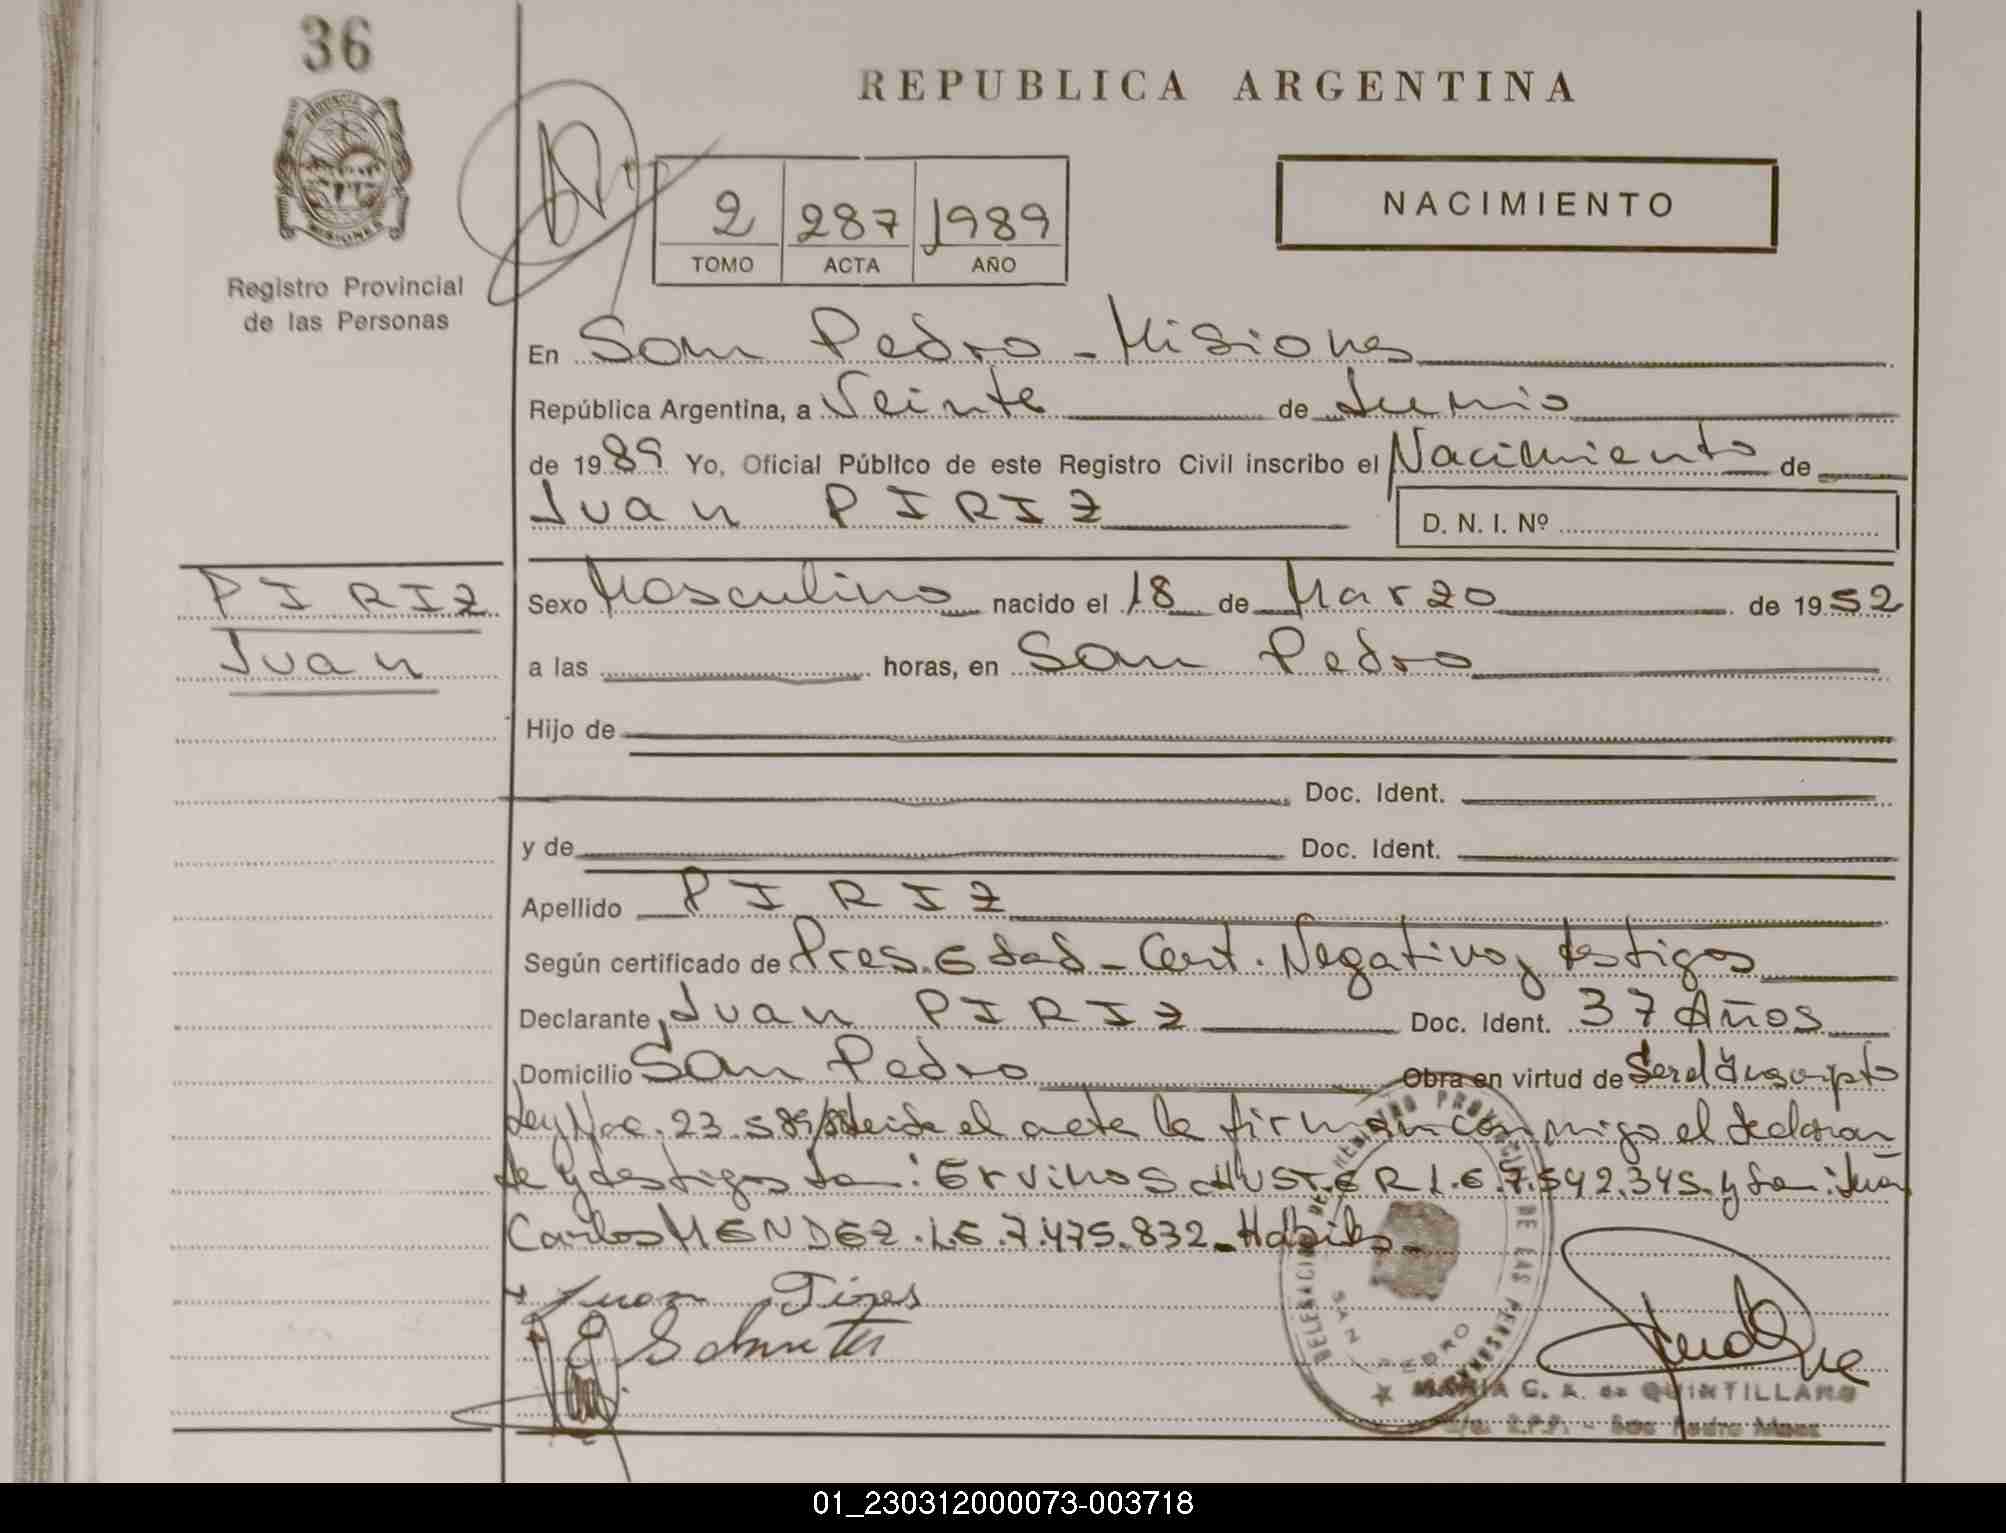 36
REPUBLICA ARGENTINA
NACIMIENTO
PROVINCIA
MISIONES
Registro Provincial
de las Personas
2 287 1989
TOMO ACTA AÑO
En San Pedro - Misiones
República Argentina, a Veinte de Junio
de 1989 Yo, Oficial Público de este Registro Civil inscribo el Nacimiento de
Juan PIRIZ
D. N. I. Nº
PIRIZ
Juan
Sexo Masculino nacido el 18 de Marzo de 1952
a las horas, en San Pedro
Hijo de
Doc. Ident.
y de Doc. Ident.
Apellido PIRIZ
Según certificado de Pres. Edad - Cert. Negativo y testigos
Declarante, Juan PIRIZ Doc. Ident. 37 Años
Domicilio San Pedro Obra en virtud de Serel Inscripto
Ley Nac. 23.589/88 leida el acta la firman conmigo el declaran
te y testigos Don: Ervino SCHUSTER L.E. 7.542.345 y Don: Juan
Carlos MENDEZ. L.E. 7.475.832 - Habiles -
Juan Pires
E Schuster
DELEGACION DEL REGISTRO PROVINCIAL DE LAS PERSONAS
SAN PEDRO
MARIA C. A. de QUINTILLANO
R.P.P. - San Pedro Mnes
01_230312000073-003718